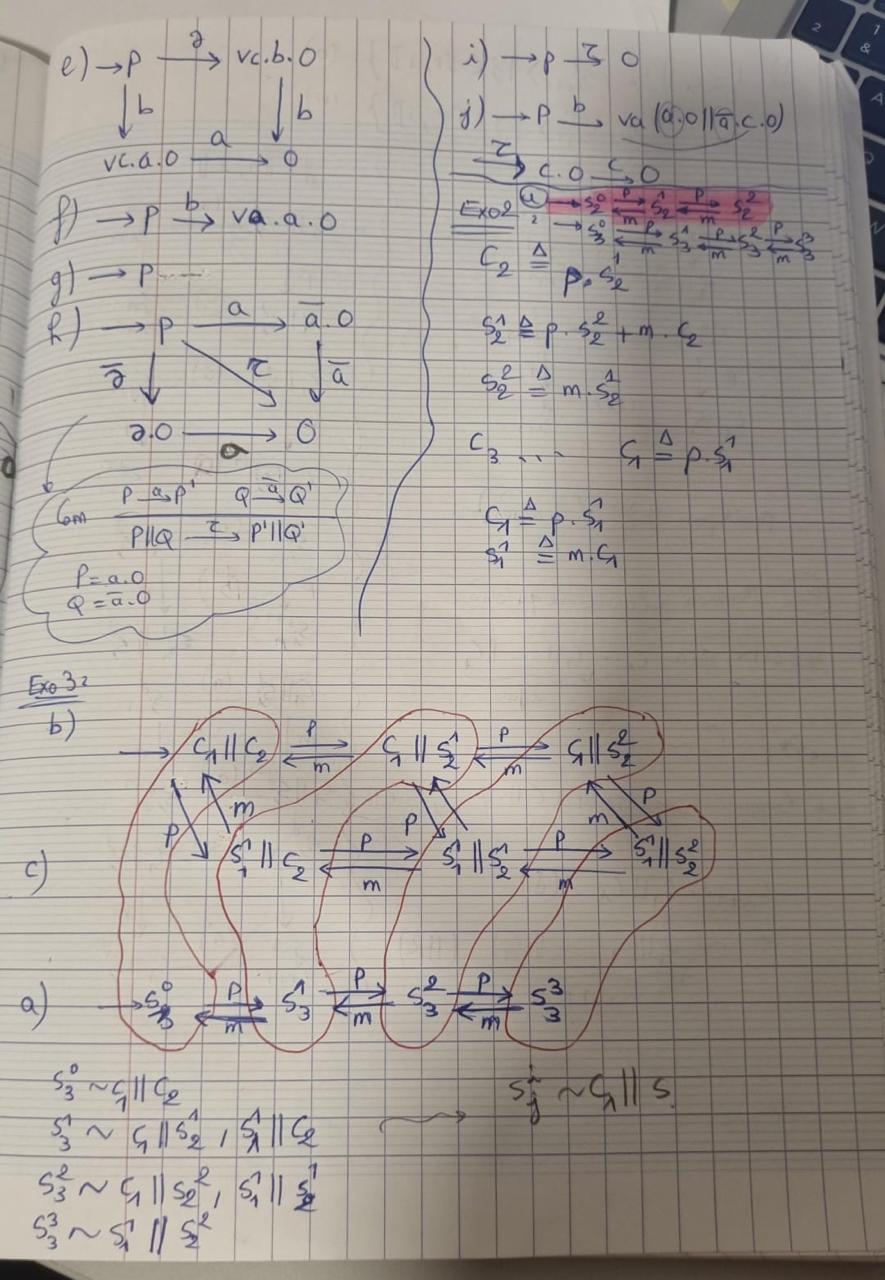 e) → P →ᵃ νc.b.0
↓b ↓b
νc.a.0 →ᵃ 0
f) → P →ᵇ νa.a.0
g) → P
h) → P →ᵃ ā.0
ā↓ τ↘ ↓ā
a.0 →ᵃ 0
Com P →ᵃ P' Q →ᵃ̄ Q'
P||Q →^τ P'||Q'
P = a.0
Q = ā.0
i) → P →^τ 0
j) → P →ᵇ νa (a.0 || ā.c.0)
→^τ c.0 →ᶜ 0
Exo2: a) → S₂⁰ ⇄ S₂¹ ⇄ S₂² p m p m
→ S₃⁰ ⇄ S₃¹ ⇄ S₃² ⇄ S₃³ p m p m p m
C₂ ≜
p.S₂¹
S₂¹ ≜ p.S₂² + m.C₂
S₂² ≜ m.S₂¹
C₃ ... C₁ ≜ p.S₁¹
C₁ ≜ p.S₁¹
S₁¹ ≜ m.C₁
Exo3:
b)
→ C₁ || C₂ ⇄ C₁ || S₂¹ ⇄ C₁ || S₂² p m p m
p m p m p
c) S₁¹ || C₂ ⇄ S₁¹ || S₂¹ ⇄ S₁¹ || S₂² p m p m
a) → S₃⁰ ⇄ S₃¹ ⇄ S₃² ⇄ S₃³ p m p m p m
S₃⁰ ~ C₁ || C₂
S₃¹ ~ C₁ || S₂¹, S₁¹ || C₂
S₃² ~ C₁ || S₂², S₁¹ || S₂¹
S₃³ ~ S₁¹ || S₂²
Sⱼⁱ ~ C₁ || S